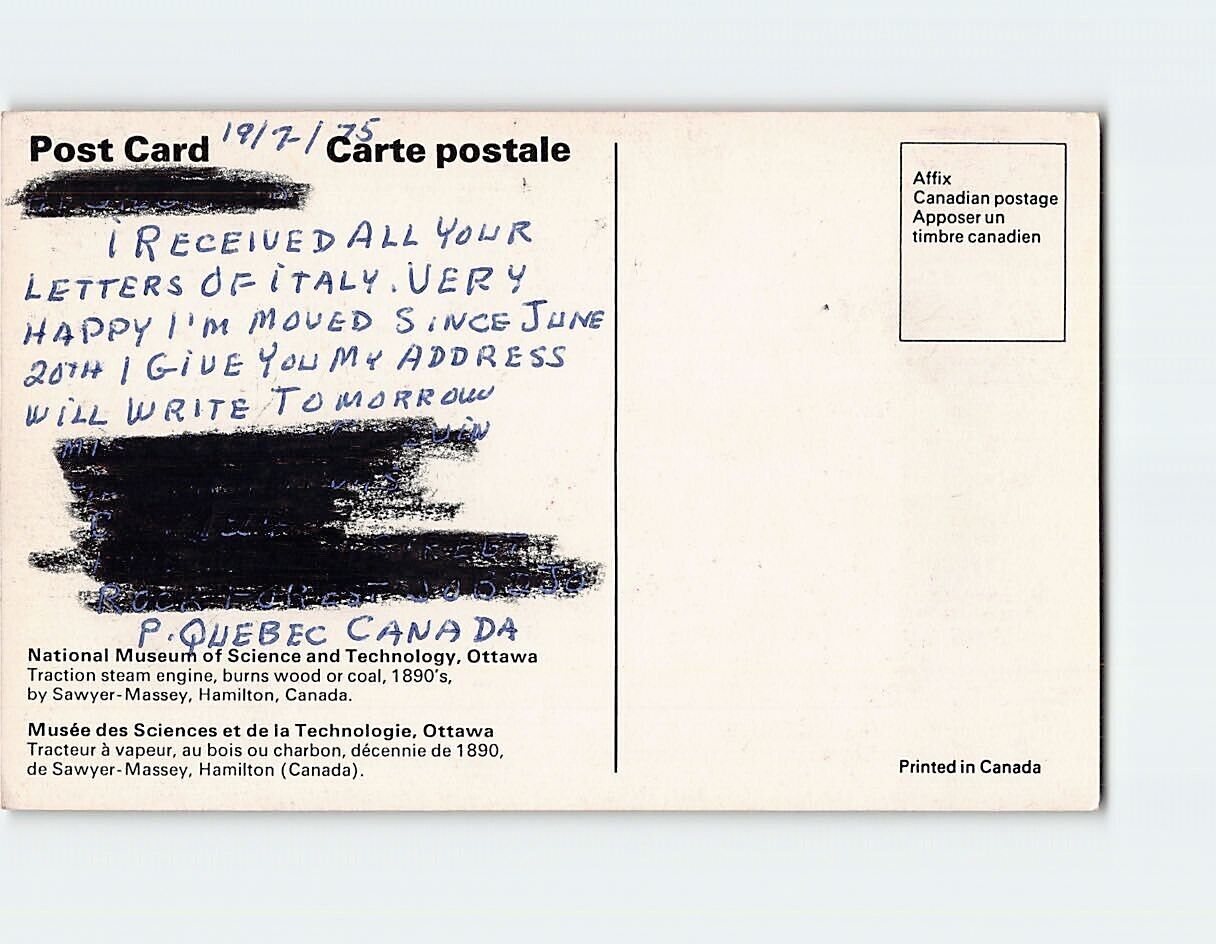 Post Card 19/7/75 Carte postale
I RECEIVED ALL YOUR
LETTERS OF ITALY. VERY
HAPPY I'M MOVED SINCE JUNE
20TH I GIVE YOU MY ADDRESS
WILL WRITE TOMORROW
P. QUEBEC CANADA
National Museum of Science and Technology, Ottawa
Traction steam engine, burns wood or coal, 1890's,
by Sawyer-Massey, Hamilton, Canada.
Musée des Sciences et de la Technologie, Ottawa
Tracteur à vapeur, au bois ou charbon, décennie de 1890,
de Sawyer-Massey, Hamilton (Canada).
Affix
Canadian postage
Apposer un
timbre canadien
Printed in Canada